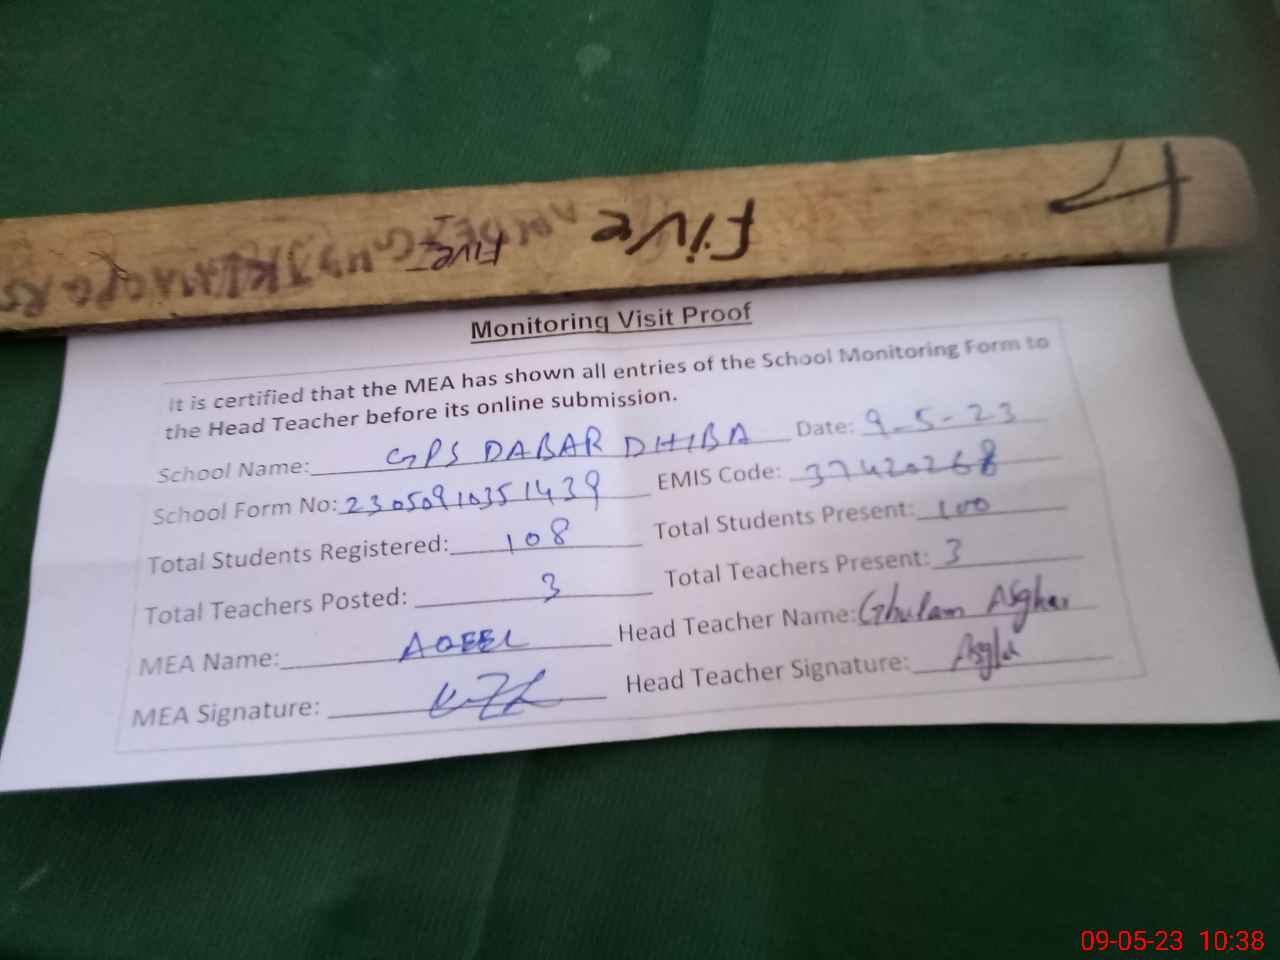 five
FIVE
Monitoring Visit Proof
It is certified that the MEA has shown all entries of the School Monitoring Form to
the Head Teacher before its online submission.
School Name: GPS DABAR DHIBA Date: 9-5-23
School Form No: 23050910351439 EMIS Code: 37420268
Total Students Registered: 108 Total Students Present: 100
Total Teachers Posted: 3 Total Teachers Present: 3
MEA Name: AQEEL Head Teacher Name: Ghulam Asghar
MEA Signature: Head Teacher Signature:
09-05-23 10:38